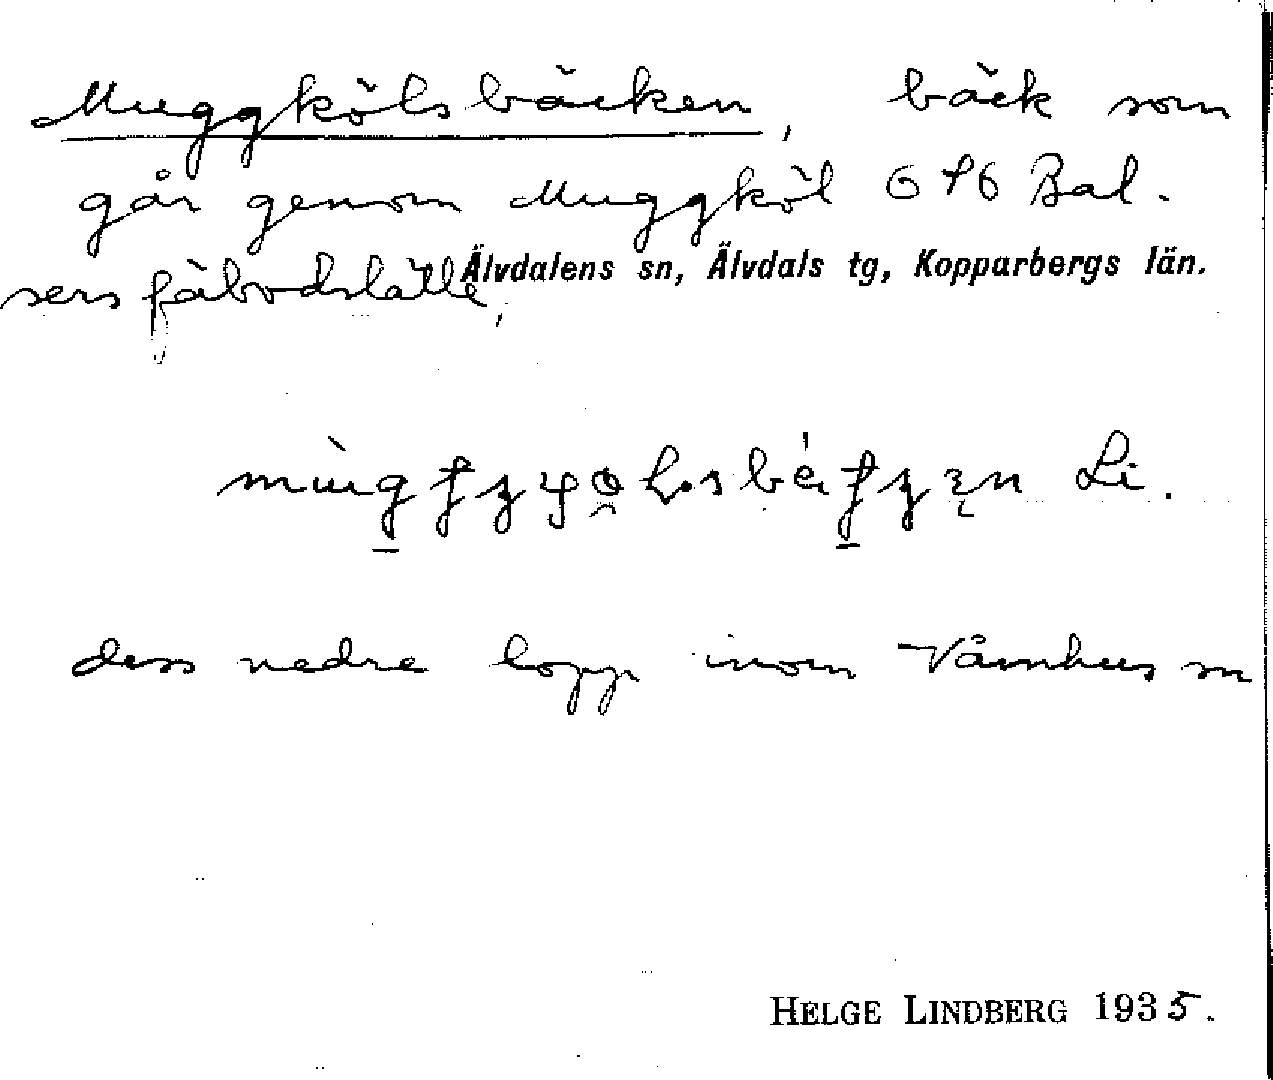 Muggkölsbäcken, bäck som
går genom Muggköl o Bal-
sers fäbodställe,
Älvdalens sn, Älvdals tg, Kopparbergs län.
Li.
dess nedre lopp inom Våmhus sn
HELGE LINDBERG 1935.